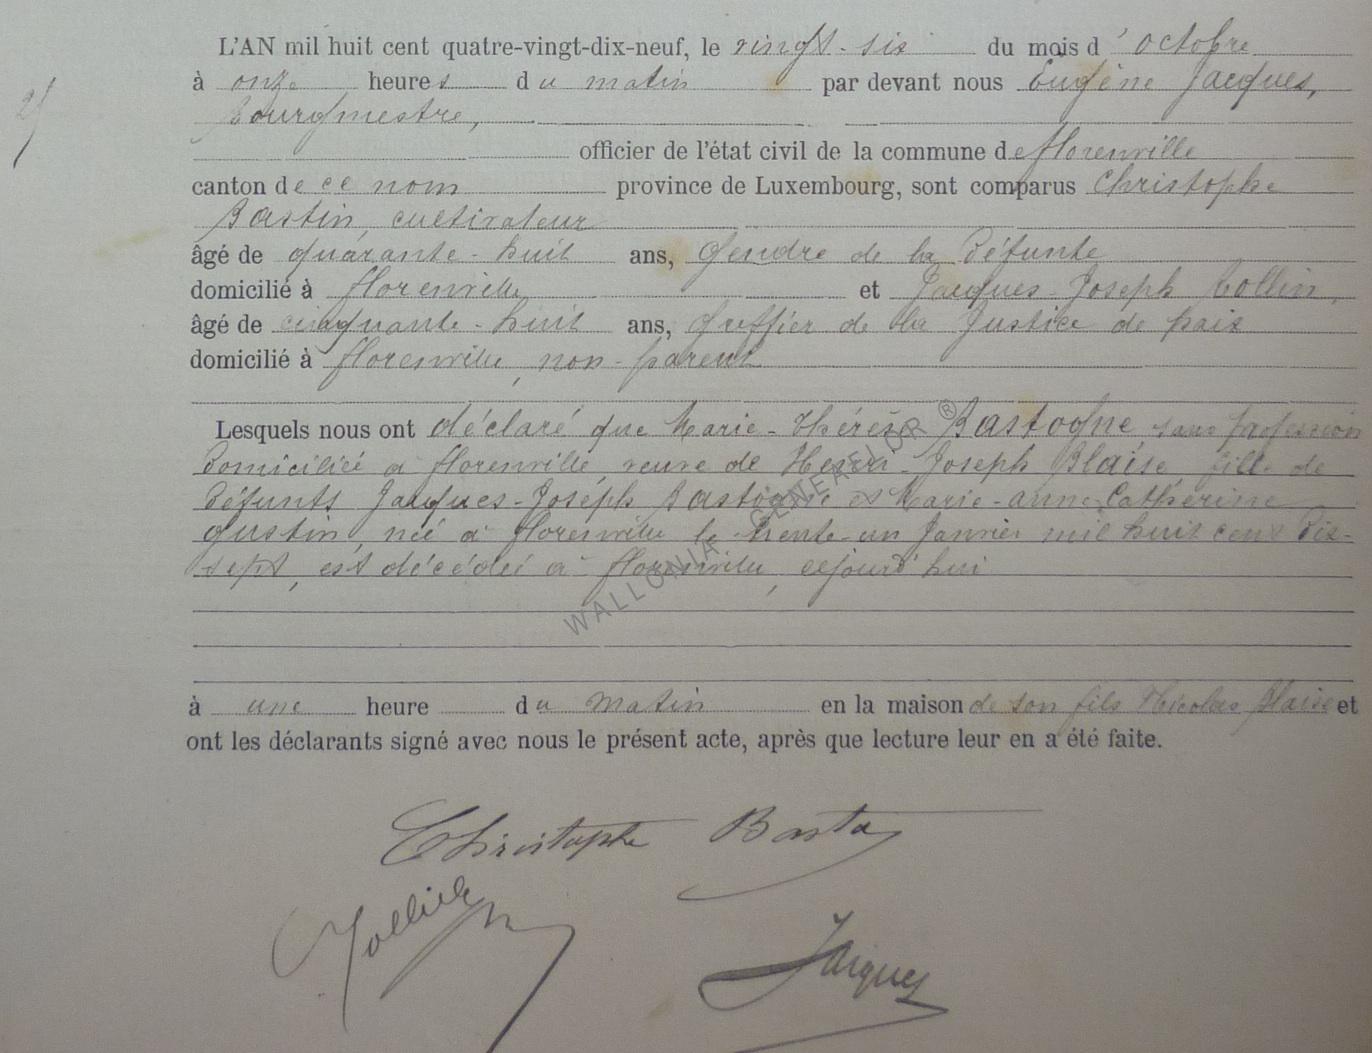 L'AN mil huit cent quatre-vingt-dix-neuf, le vingt-six du mois d'octobre
à onze heures du matin par devant nous Eugène Jacques,
Bourgmestre,
officier de l'état civil de la commune de florenville
canton de ce nom province de Luxembourg, sont comparus Christophe
Bastin, cultivateur
âgé de quarante-huit ans, Gendre de la Défunte
domicilié à florenville et Jacques-Joseph Collin,
âgé de cinquante-huit ans, Greffier de la Justice de paix
domicilié à florenville, non-parent
Lesquels nous ont déclaré que Marie-Thérèse Bastogne sans profession
Domiciliée à florenville veuve de Henri-Joseph Blaise fille de
Défunts Jacques-Joseph Bastogne et Marie-anne-Catherine
Gustin, née à florenville le trente-un Janvier mil huit cent Dix-
sept, est décédée à florenville, cejourd'hui
à une heure du matin en la maison de son fils Nicolas Blaise et
ont les déclarants signé avec nous le présent acte, après que lecture leur en a été faite.
WALLONIA GENEAFLOR ®
Christophe Bastin
JCollin
Jacques